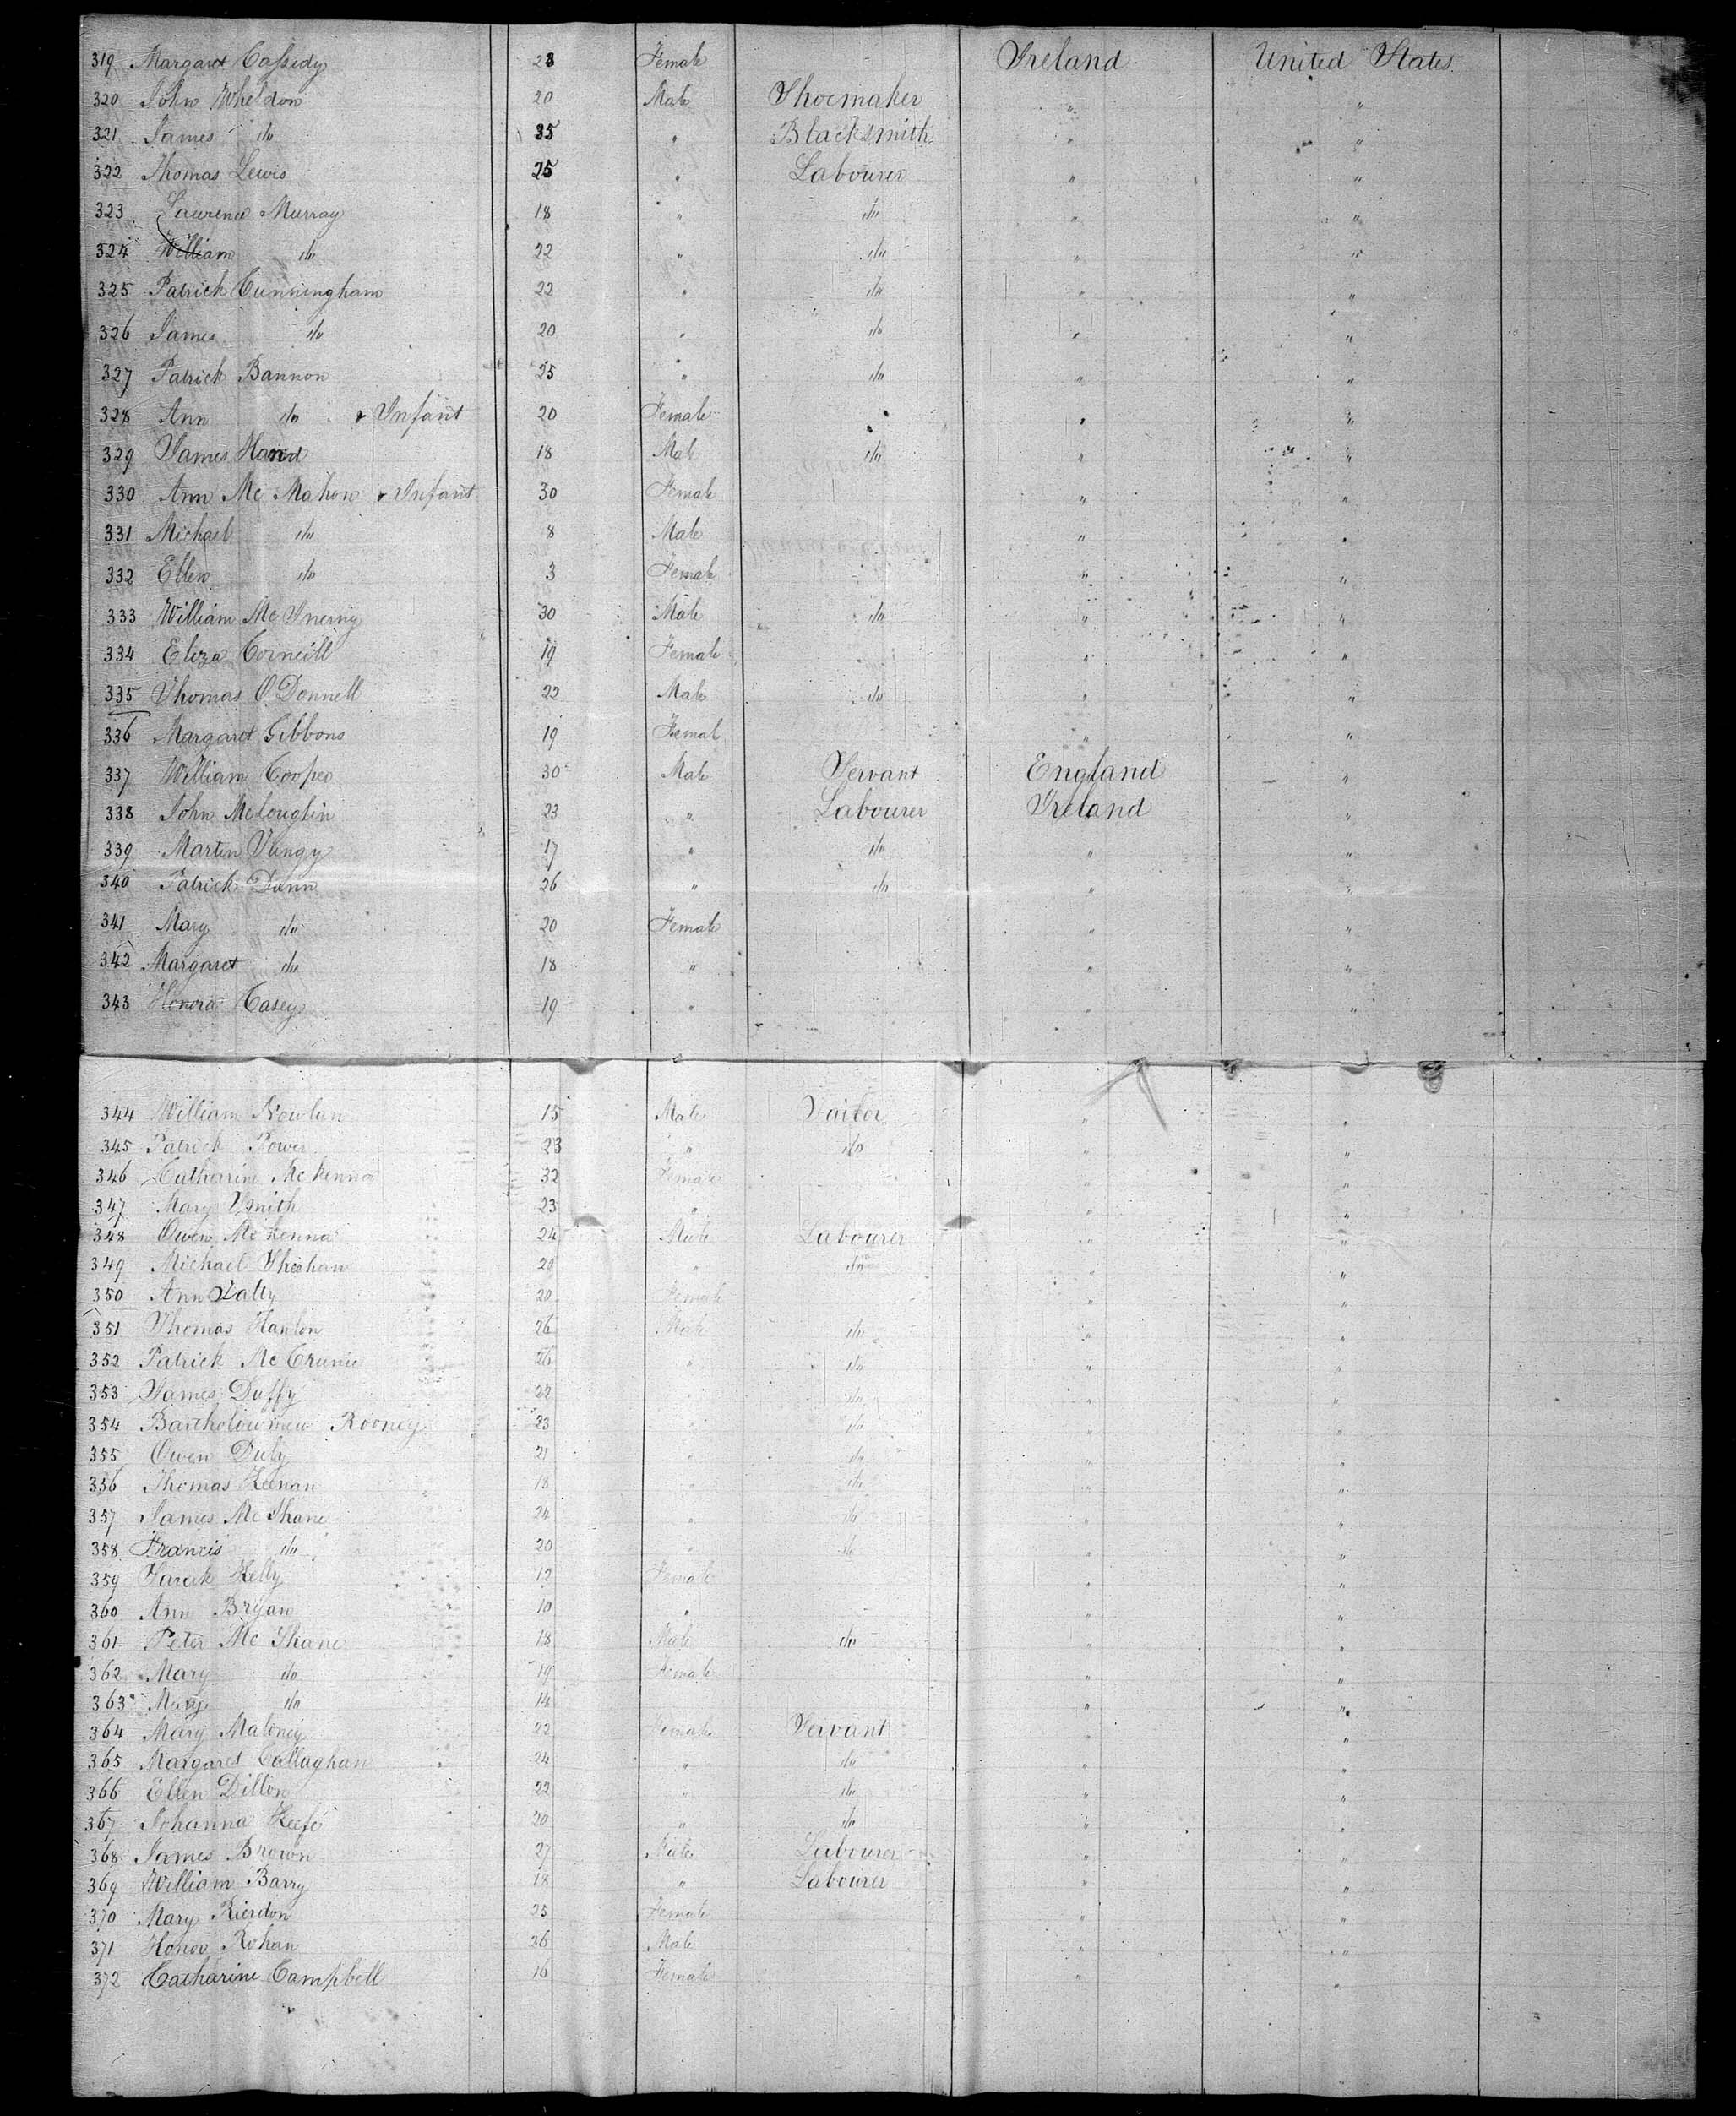 319 Margaret Cassidy 23 Female Ireland United States
320 John Wheldon 20 Male Shoemaker " "
321 James do 35 " Blacksmith " "
322 Thomas Lewis 25 " Labourer " "
323 Laurence Murray 18 " do " "
324 William do 22 " do " "
325 Patrick Cunningham 22 " do " "
326 James do 20 " do " "
327 Patrick Bannon 25 " do " "
328 Ann do & Infant 20 Female " "
329 James Hand 18 Male do " "
330 Ann Mc Mahon & Infant 30 Female " "
331 Michael do 8 Male " "
332 Ellen do 3 Female " "
333 William Mc Inerny 30 Male do " "
334 Eliza Corneill 19 Female " "
335 Thomas O'Donnell 22 Male do " "
336 Margaret Gibbons 19 Female " "
337 William Cooper 30 Male Servant England "
338 John McLoughlin 23 " Labourer Ireland "
339 Martin 17 " do " "
340 Patrick Dunn 26 " do " "
341 Mary do 20 Female " "
342 Margaret do 18 " " "
343 Honora Casey 19 " " "
344 William Nowlan 15 Male Tailor " "
345 Patrick Power 23 " do " "
346 Catharine McKenna 32 Female " "
347 Mary Smith 23 " " "
348 Owen McKenna 24 Male Labourer " "
349 Michael Sheehan 20 " do " "
350 Ann Lally 20 Female " "
351 Thomas Hanlon 26 Male do " "
352 Patrick Mc 26 " do " "
353 James Duffy 22 " do " "
354 Bartholowmew Rooney 23 " do " "
355 Owen Duly 21 " do " "
356 Thomas Keenan 18 " do " "
357 James Mc Shane 24 " do " "
358 Francis do 20 " do " "
359 Sarah Kelly 12 Female " "
360 Ann Bryan 10 " " "
361 Peter Mc Shane 18 Male do " "
362 Mary do 19 Female " "
363 Mary do 14 " "
364 Mary Maloney 22 Female Servant " "
365 Margaret Callaghan 24 " do " "
366 Ellen Dillon 22 " do " "
367 Johanna Keefe 20 " do " "
368 James Brown 27 Male Labourer " "
369 William Barry 18 " Labourer " "
370 Mary Rierdon 25 Female " "
371 Honor Rohan 36 Male " "
372 Catharine Campbell 16 Female " "